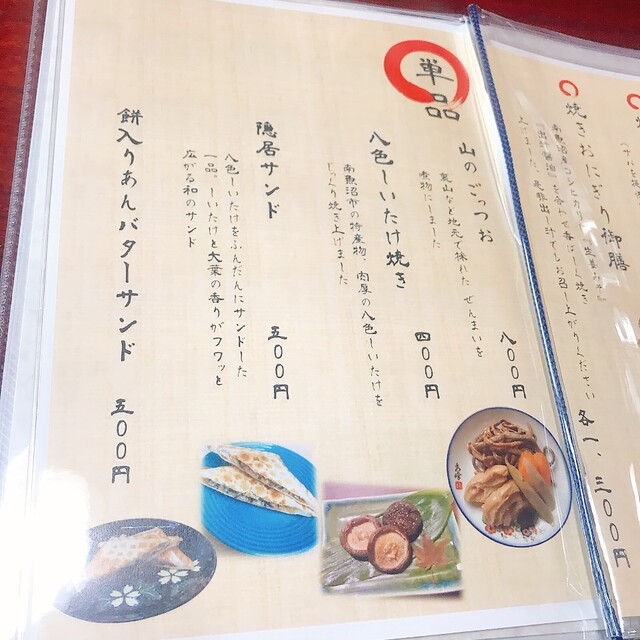 焼きおにぎり御膳
南魚沼産コシヒカリ
上げました。是非出し汁でもお召し上がりください
各一、三〇〇円
単品
山のごっつお
裏山など地元で採れた ぜんまいを
煮物にしました
八〇〇円
八色しいたけ焼き
南魚沼市の特産物、肉厚の八色しいたけを
じっくり焼き上げました
四〇〇円
隠居サンド
八色しいたけをふんだんにサンドした
一品。しいたけと大葉の香りがフワッと
広がる和のサンド
五〇〇円
餅入りあんバターサンド
五〇〇円